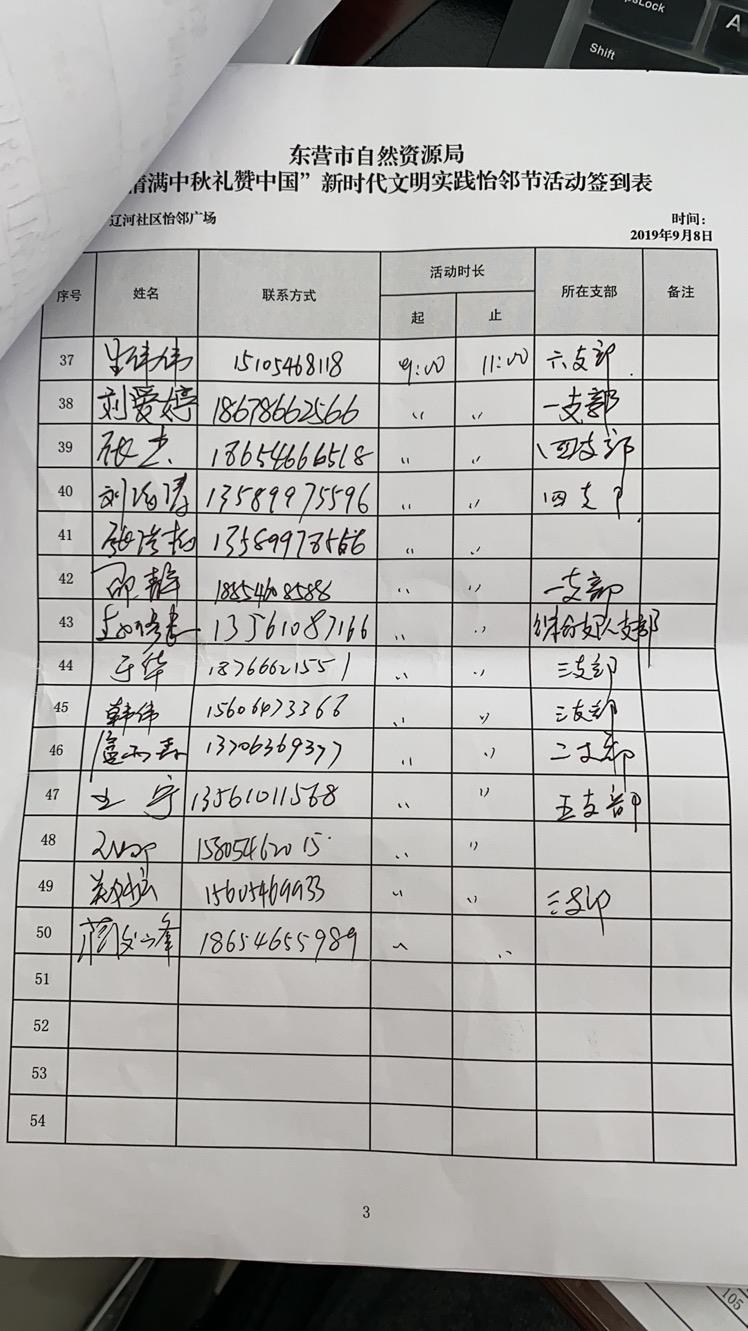 东营市自然资源局
情满中秋礼赞中国”新时代文明实践怡邻节活动签到表
辽河社区怡邻广场 时间：
2019年9月8日
序号 姓名 联系方式 活动时长 所在支部 备注
起 止
37 生伟伟 15105468118 9:00 11:00 六支部
38 刘爱婷 18678662566 〃 〃 一支部
39 张杰 18654666518 〃 〃 四支部
40 13589975596 〃 〃 四支部
41 〃 〃
42 邵静 18854608588 〃 〃 一支部
43 13561087166 〃 〃
44 于华 18766621551 〃 〃 三支部
45 韩伟 15606473366 〃 〃 三支部
46 13706369377 〃 〃 二支部
47 王宇 13561011568 〃 〃 五支部
48 15805462015 〃 〃
49 15605469933 〃 〃 三支部
50 18654655989 〃 〃
51
52
53
54
3
Shift
A
105